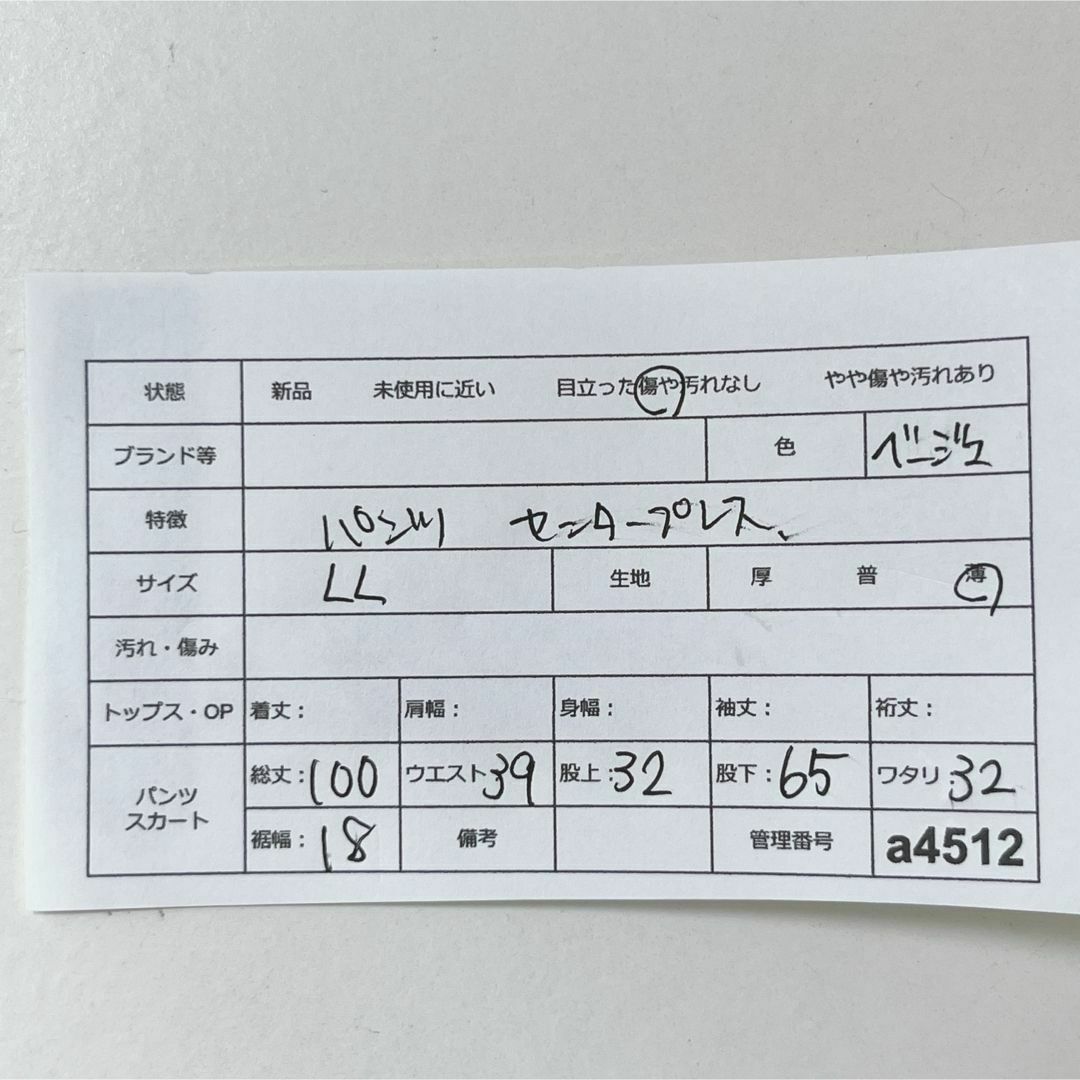 状態 新品 未使用に近い 目立った傷や汚れなし やや傷や汚れあり
ブランド等 色 ベージュ
特徴 パンツ センタープレス、
サイズ LL 生地 厚 普 薄
汚れ・傷み
トップス・OP 着丈： 肩幅： 身幅： 袖丈： 裄丈：
パンツ スカート 総丈：100 ウエスト39 股上：32 股下：65 ワタリ32
裾幅：18 備考 管理番号 a4512